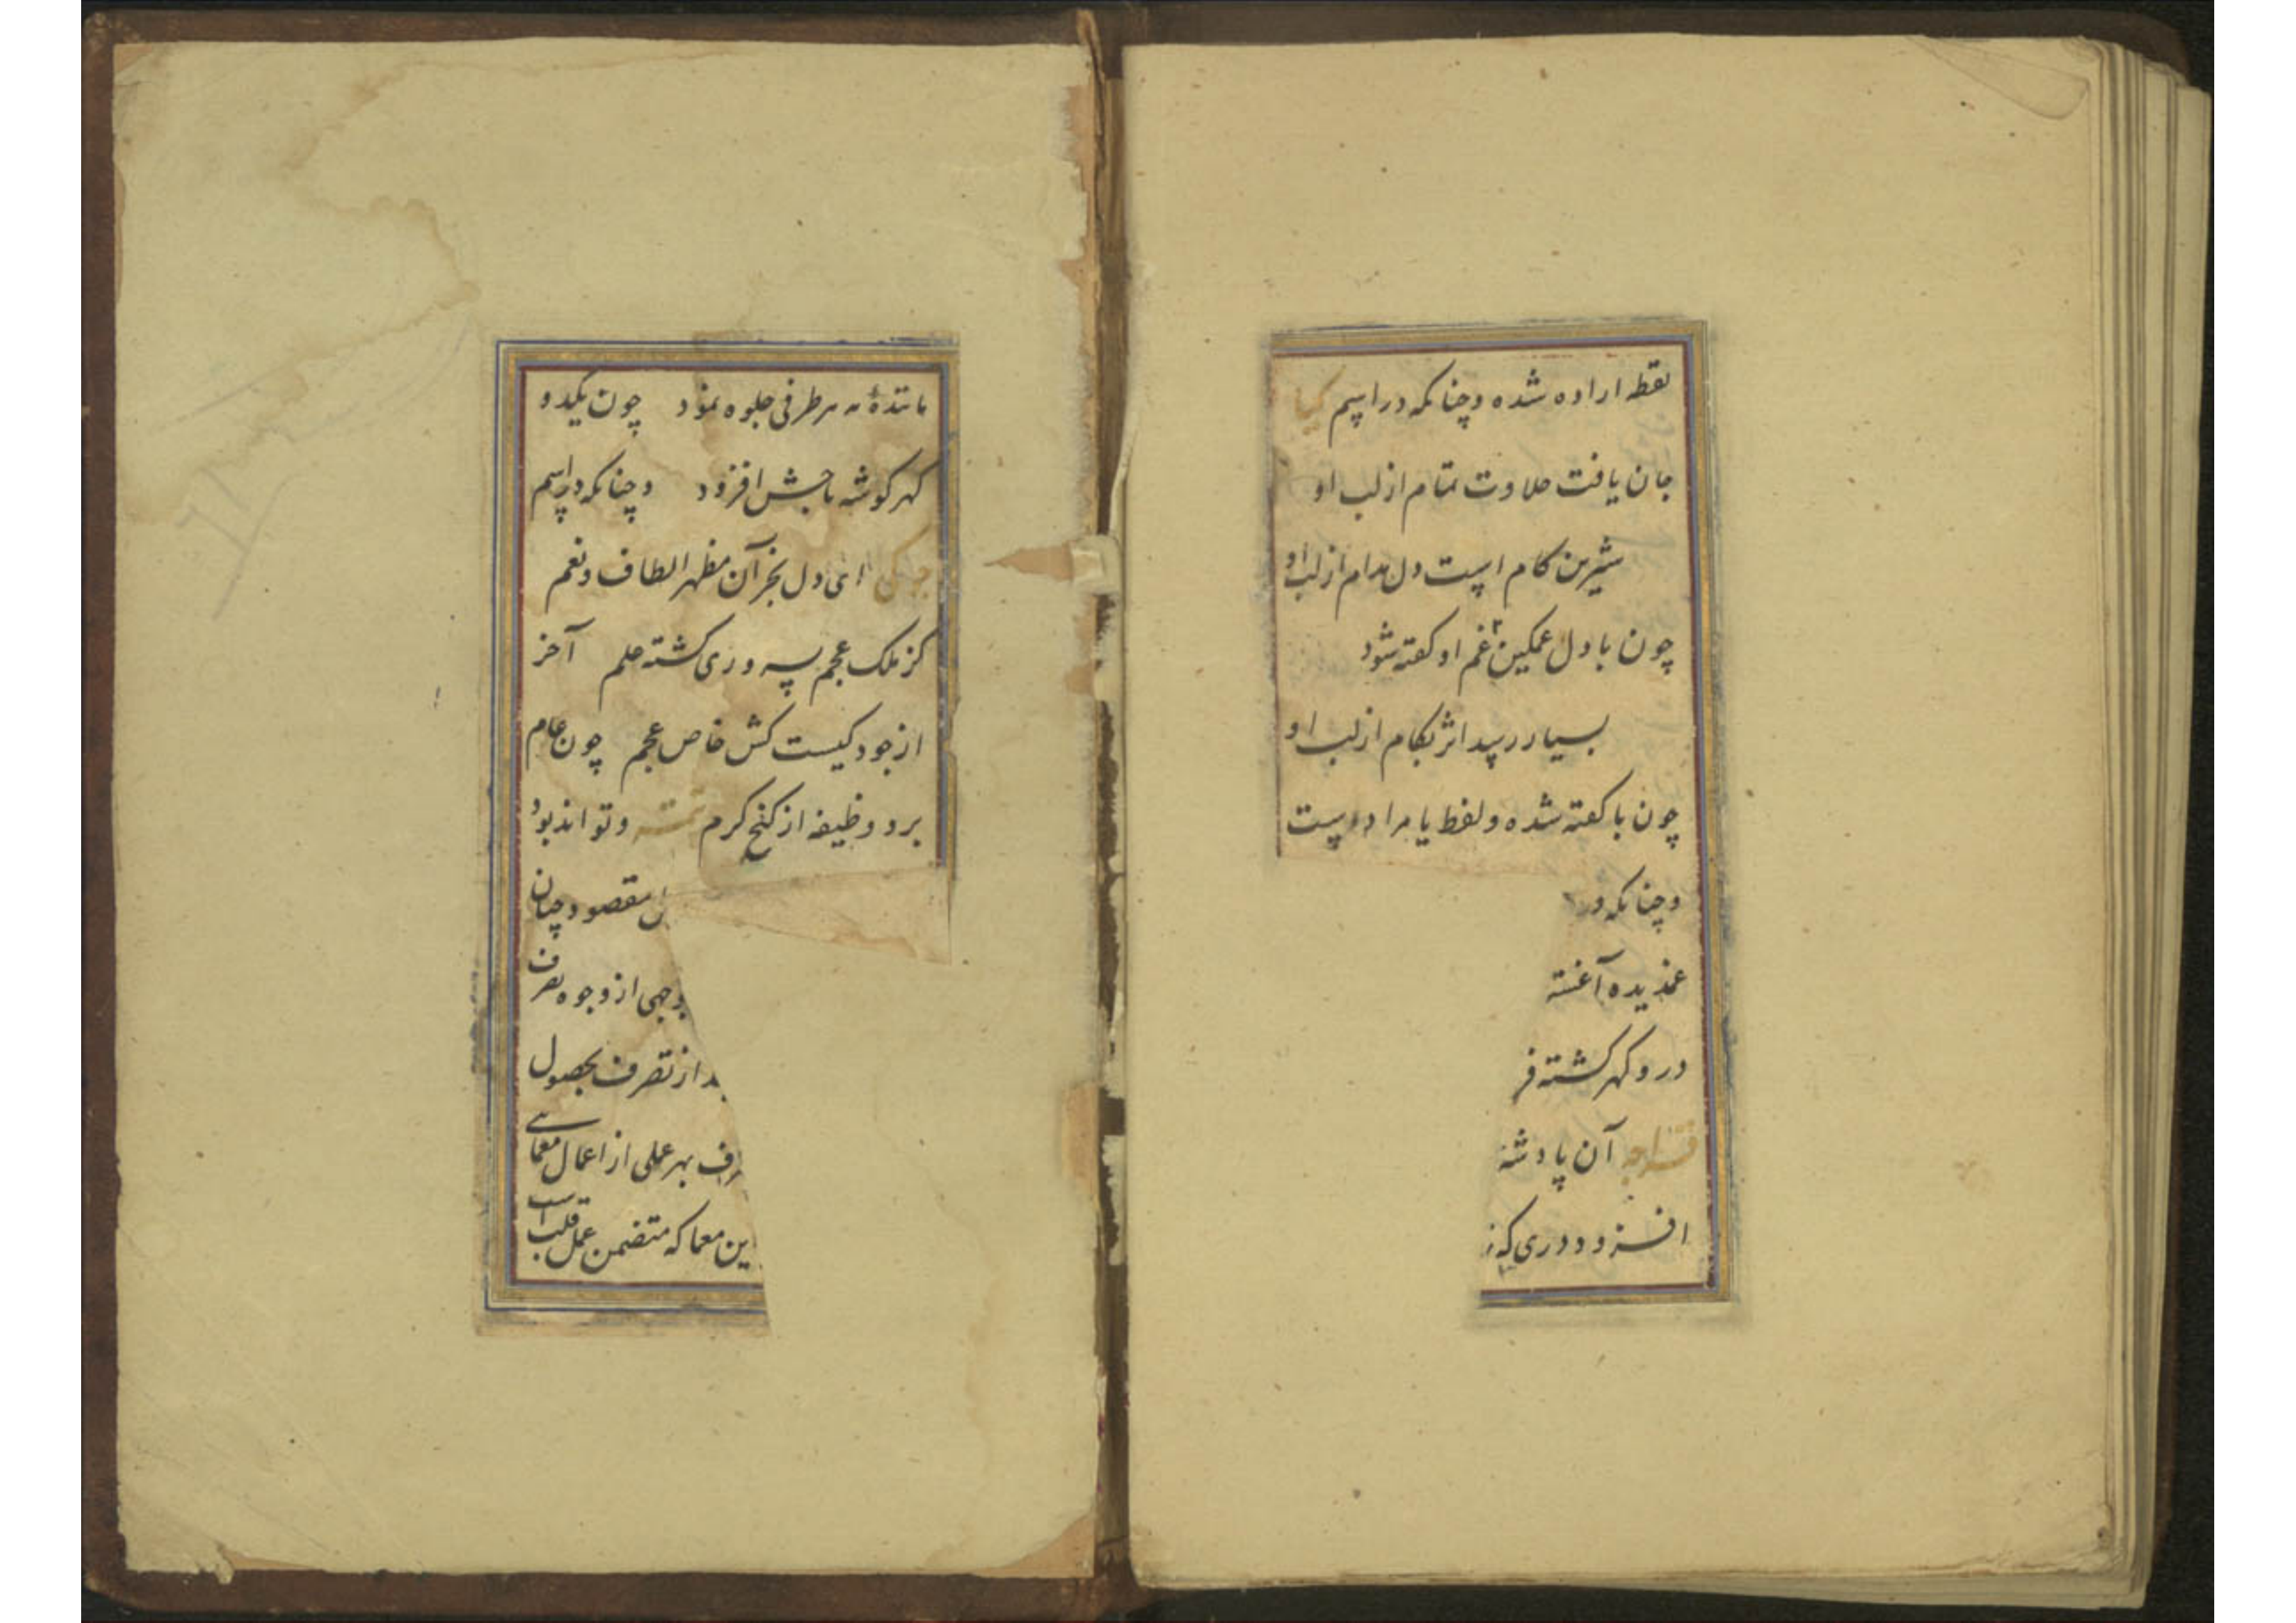 نقطه اراده شده و چنانکه در اسم کیا
جان یافت حلاوت تمام از لب او
شیرین کام است دل مدام از لب او
چون با دل غمگین غم او گفته شود
بسیار رسد اثر بکام از لب او
چون با گفته شده و لفظ یا مراد است
و چنانکه در
غمدیده آغشته
در و گهر گشته
آن پادشه
افزود دری که ز
هر طرفی جلوه نمود چون یکدو
گهر گوشه تاجش افزود و چنانکه در اسم
ای دل بجز آن مظهر الطاف و نعم
کز ملک عجم بسروری گشته علم آخر
از جود کیست کش خاص عجم چون عام
برد وظیفه از گنج کرم تتمه و تواند بود
مقصود چنان
وجهی از وجوه تصرف
از تصرف بحصول
بهر عملی از اعمال معمایی
این معما که متضمن عمل قلب است